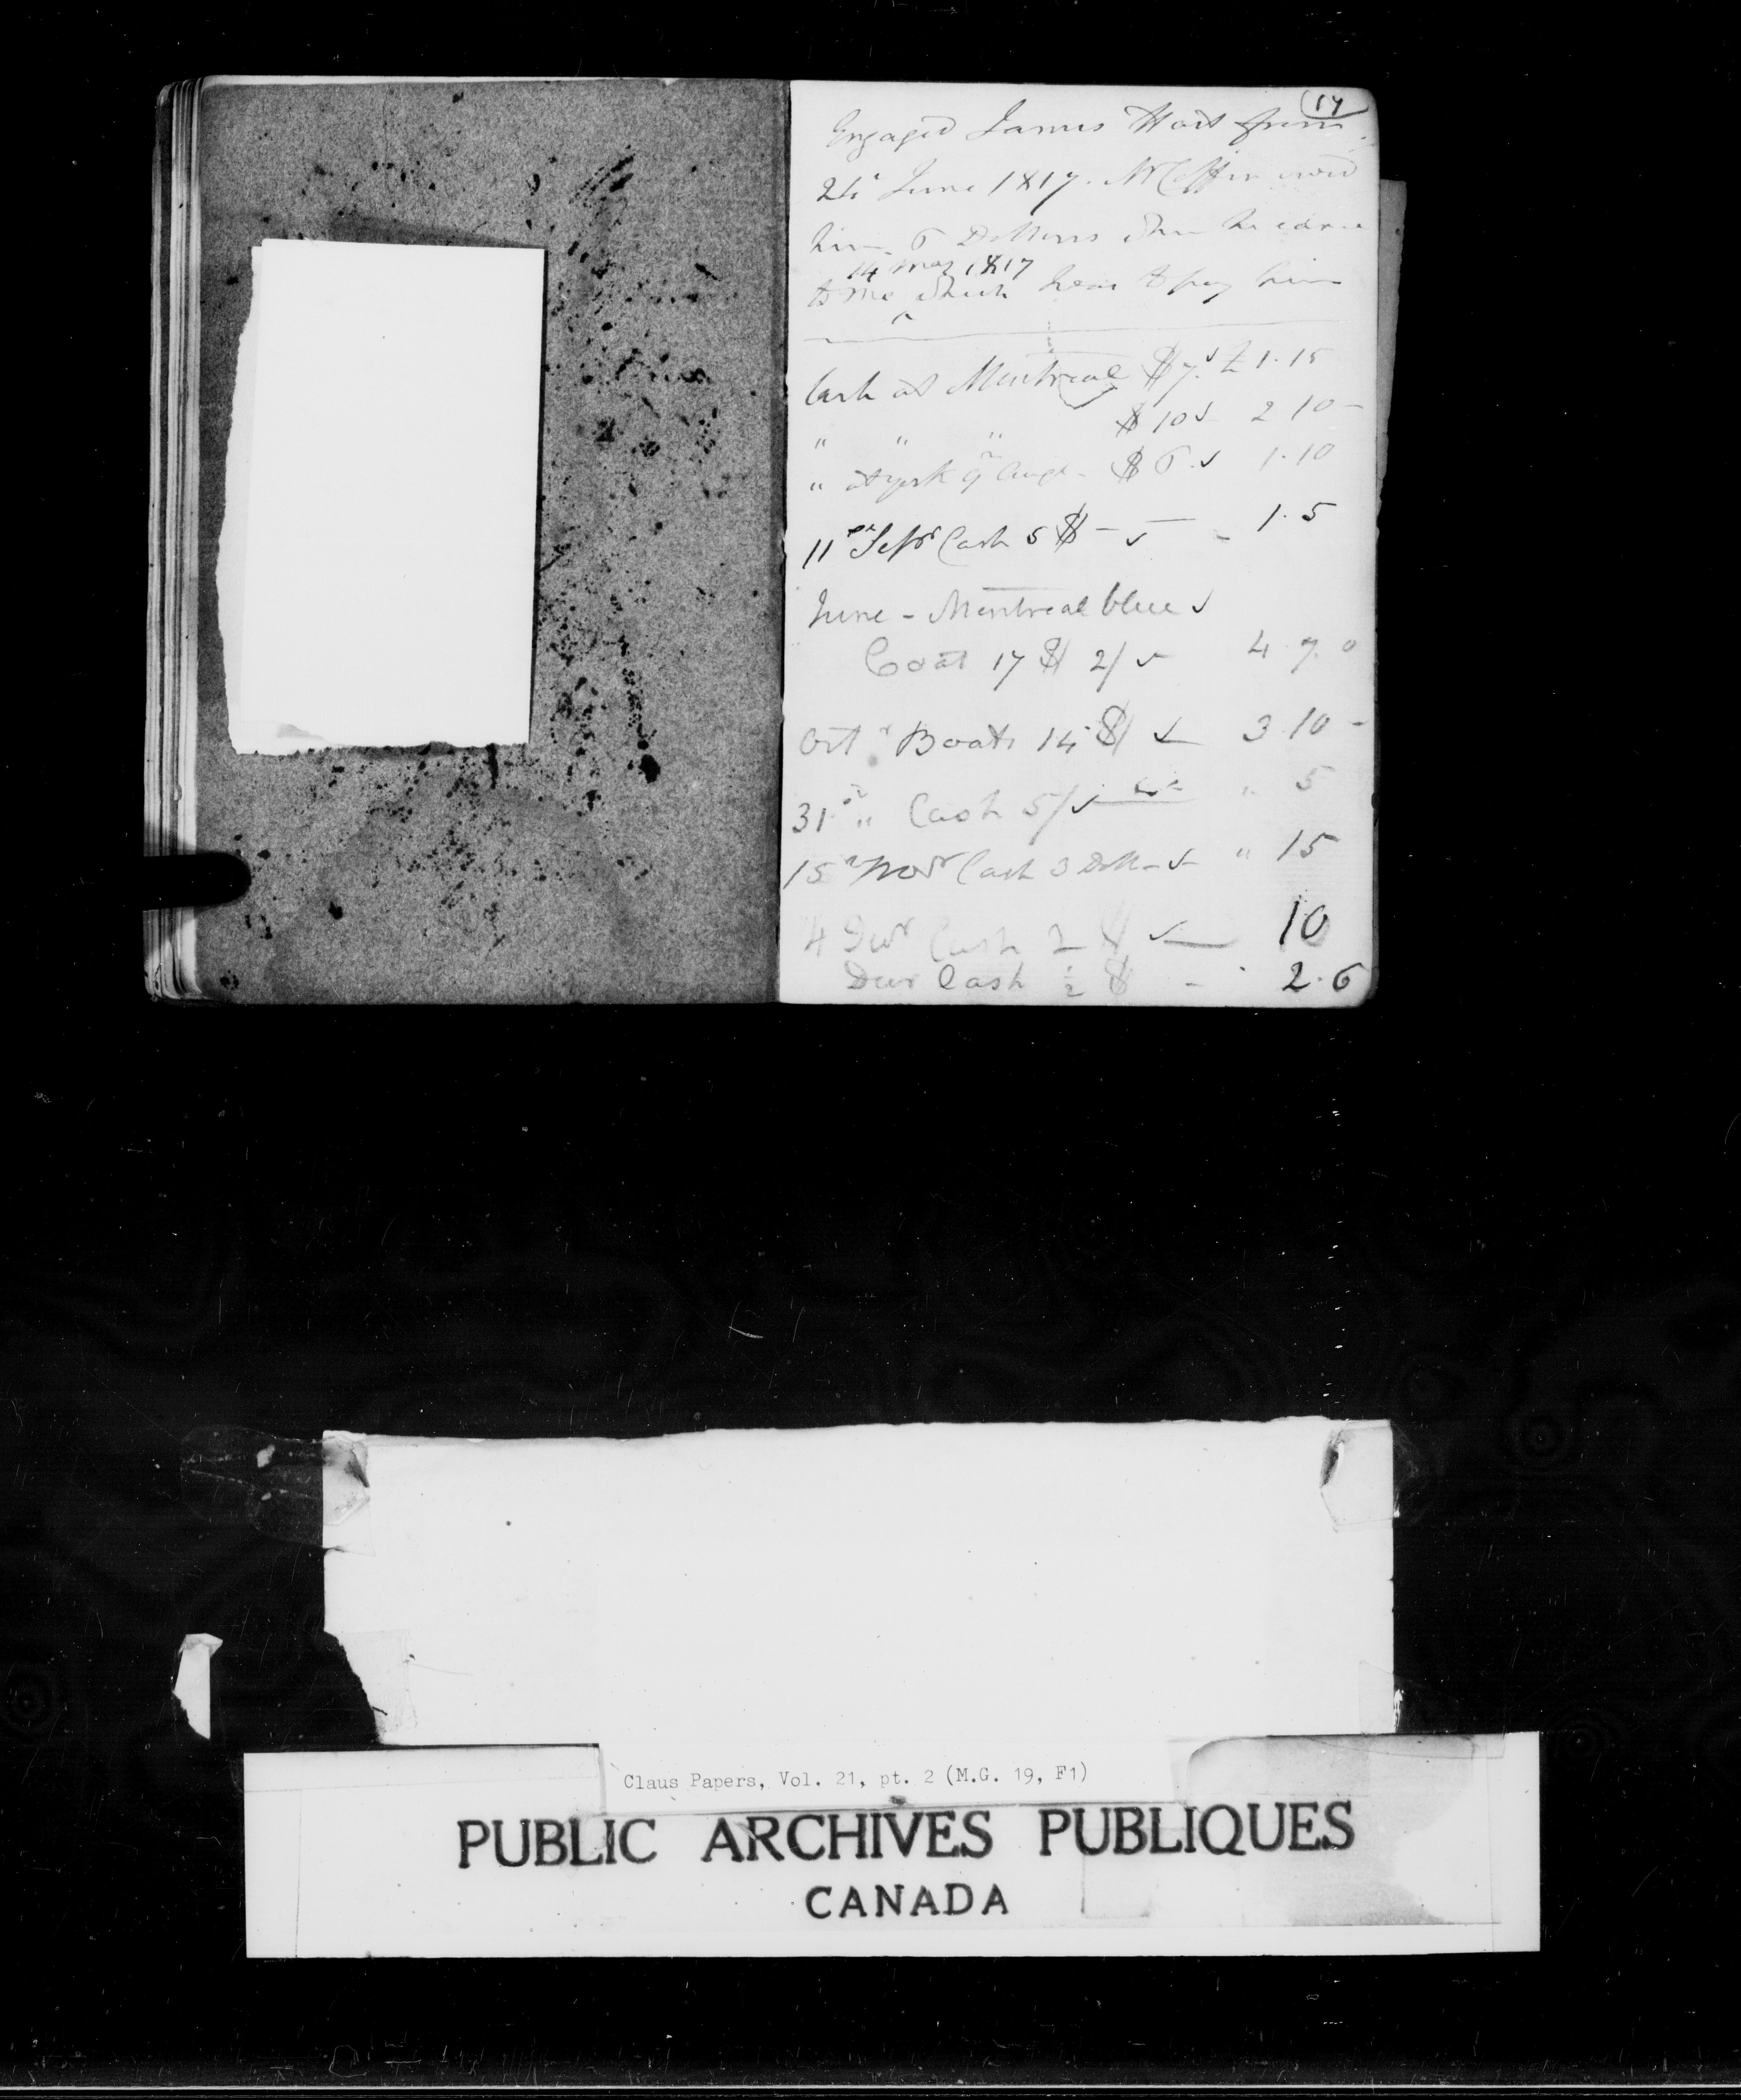 17
Engaged James Hart from
24 June 1817. Mr Coffin owed
him 6 Dollars when he came
14 May 1817
to me which he is to pay him
Cash at Montreal $7. £1.15
" " " $10 2 10 -
" at york 9th Augt - $6. 1.10
11th Sepr Cash 5 $ - 1.5
June - Montreal blue
Coat 17 $ 2/ 4 7. 0
Oct r Boots 14 $ 3 10 -
31st " Cash 5/ " 5
15th Novr Cash 3 Doll - " 15
4 Decr Cash 2 $ 10
Decr Cash ½ $ - 2.6
Claus Papers, Vol. 21, pt. 2 (M.G. 19, F1)
PUBLIC ARCHIVES PUBLIQUES
CANADA